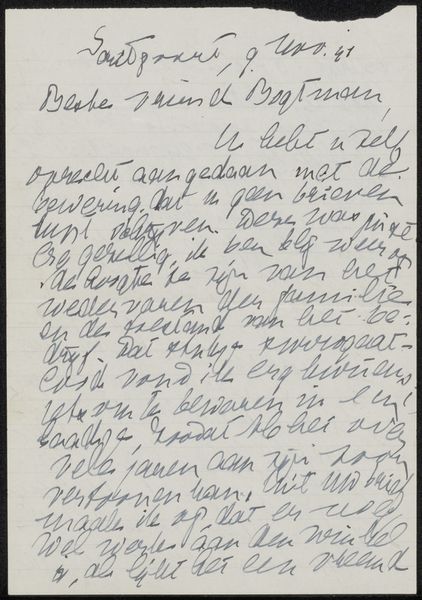 Santpoort, 9 Nov. 41
Beste vriend Bogtman,
U hebt u zelf
onrecht aangedaan met de
bewering dat u geen brieven
kunt schrijven. Deze was juist
erg gezellig, ik ben blij weer op
de hoogte te zijn van het
wedervaren der familie
en de toestand van het be-
drijf. Dat stukje surrogaat-
lood vond ik erg
om te bewaren in een
zoodat U het over
vele jaren aan zijn zoon
vertoonen kan. Uit Uw brief
maak ik op dat er nog
wel werk aan den winkel
is, al lijkt het een vreemd